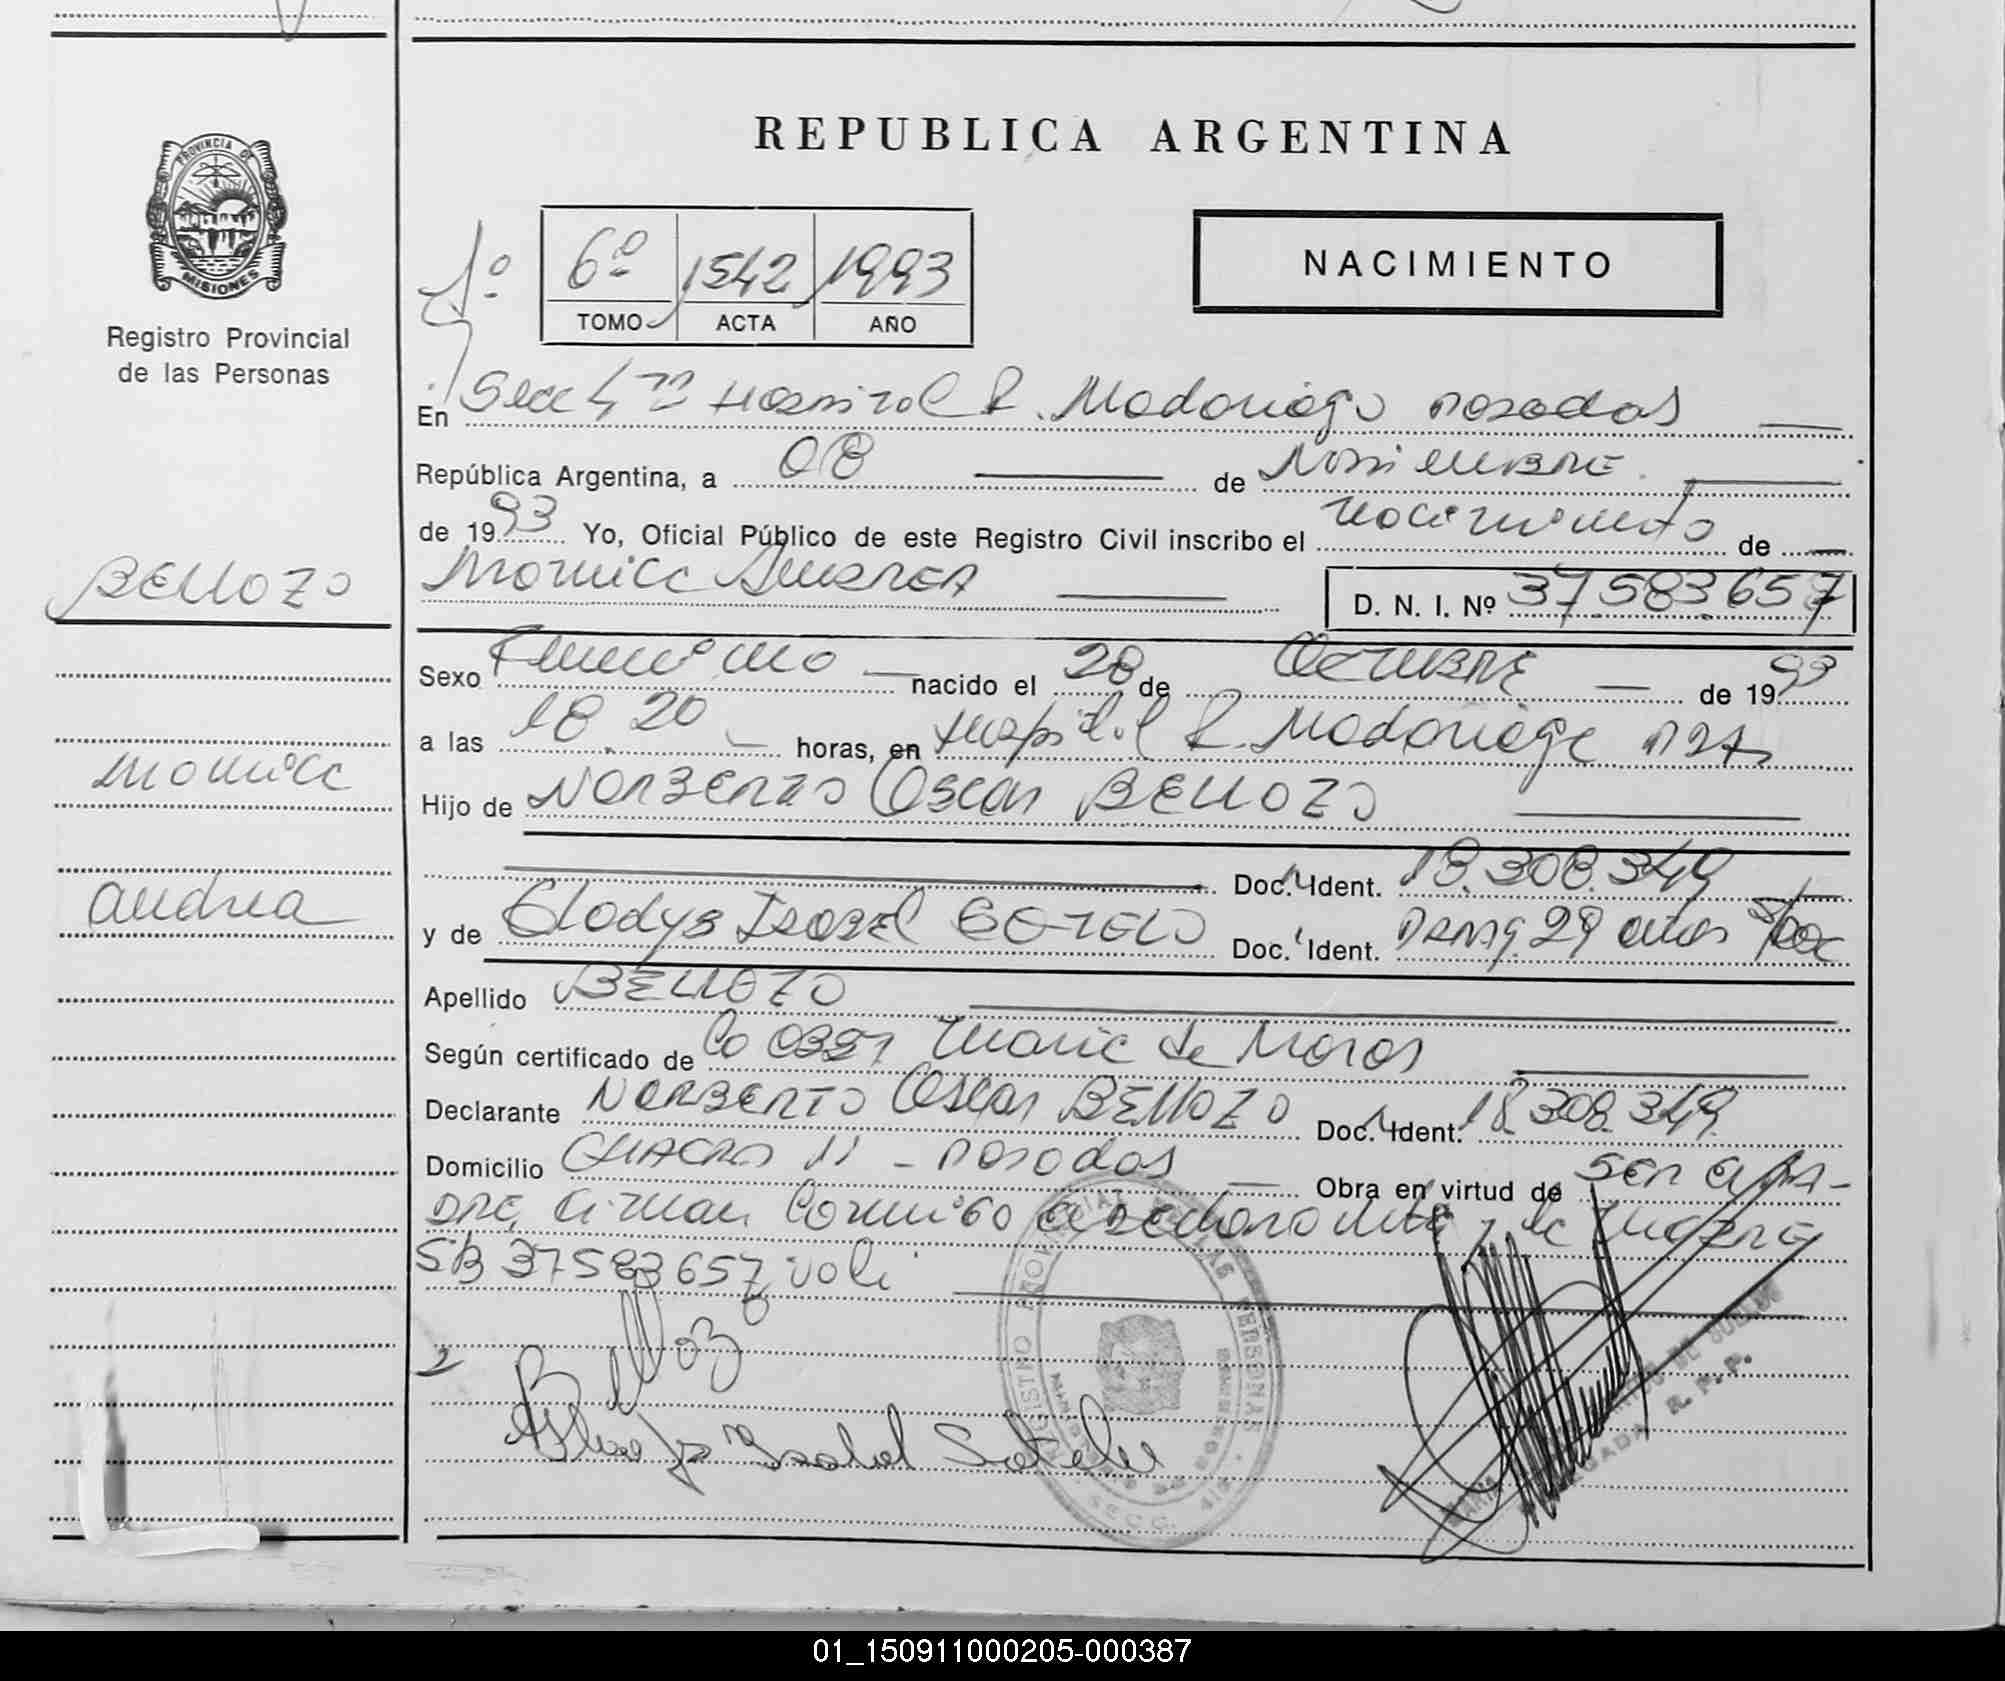 REPUBLICA ARGENTINA
PROVINCIA DE
MISIONES
Registro Provincial
de las Personas
6º 1542 1993
TOMO ACTA AÑO
NACIMIENTO
En Secc 4ta Hospital R. Madariaga Posadas
República Argentina, a 08 de Noviembre
de 1993 Yo, Oficial Público de este Registro Civil inscribo el nacimiento de
Monica Andrea D. N. I. Nº 37583.657
BELLOZO
Sexo Femenino nacido el 28 de Octubre de 1993
a las 18.20 horas, en Hospital R. Madariaga Pdas
Monica
Hijo de Norberto Oscar BELLOZO
Doc. Ident. 18.308.349
Andrea
y de Gladys Isabel SOTELO Doc. Ident. 29 años S/Doc
Apellido BELLOZO
Según certificado de Maria de
Declarante Norberto Oscar BELLOZO Doc. Ident. 18.308.349
Domicilio Chacra 11 - Posadas Obra en virtud de ser el pa-
dre, firman conmigo el declarante y la madre
37583657 vale
Bellozo
Isabel Sotelo
REGISTRO PROVINCIAL DE LAS PERSONAS
SECC.
R. P. P.
01_150911000205-000387